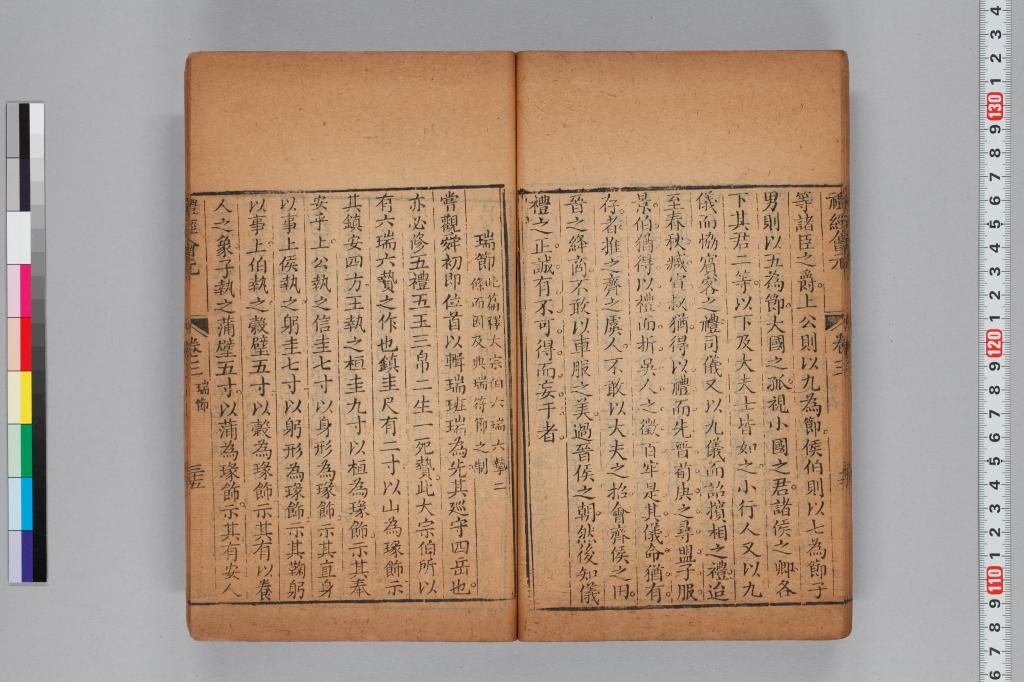 禮經會元
卷三
等諸臣之爵上公則以九為節侯伯則以七為節子
男則以五為節大國之孤視小國之君諸侯之卿各
下其君二等以下及大夫士皆如之小行人又以九
儀而恊賓客之禮司儀又以九儀而詔擯相之禮迨
至春秋臧宣叔猶得以禮而先晉荀庚之尋盟子服
景伯猶得以禮而折吳人之徵百牢是其儀命猶有
存者推之齊之虞人不敢以大夫之招會齊侯之田
晉之絳商不敢以車服之美過晉侯之朝然後知儀
禮之正誠有不可得而妄干者
瑞節
此篇釋大宗伯六瑞六摯二
條而因及典瑞符節之制
嘗觀舜初即位首以輯瑞班瑞為先其廵守四岳也
亦必修五禮五玉三帛二生一死贄此大宗伯所以
有六瑞六贄之作也鎮圭尺有二寸以山為瑑飾示
其鎮安四方王執之桓圭九寸以桓為瑑飾示其奉
安乎上公執之信圭七寸以身形為瑑飾示其直身
以事上侯執之躬圭七寸以躬形為瑑飾示其鞠躬
以事上伯執之穀璧五寸以穀為瑑飾示其有以養
人之象子執之蒲璧五寸以蒲為瑑飾示其有安人
禮經會元
卷三
瑞節
三五